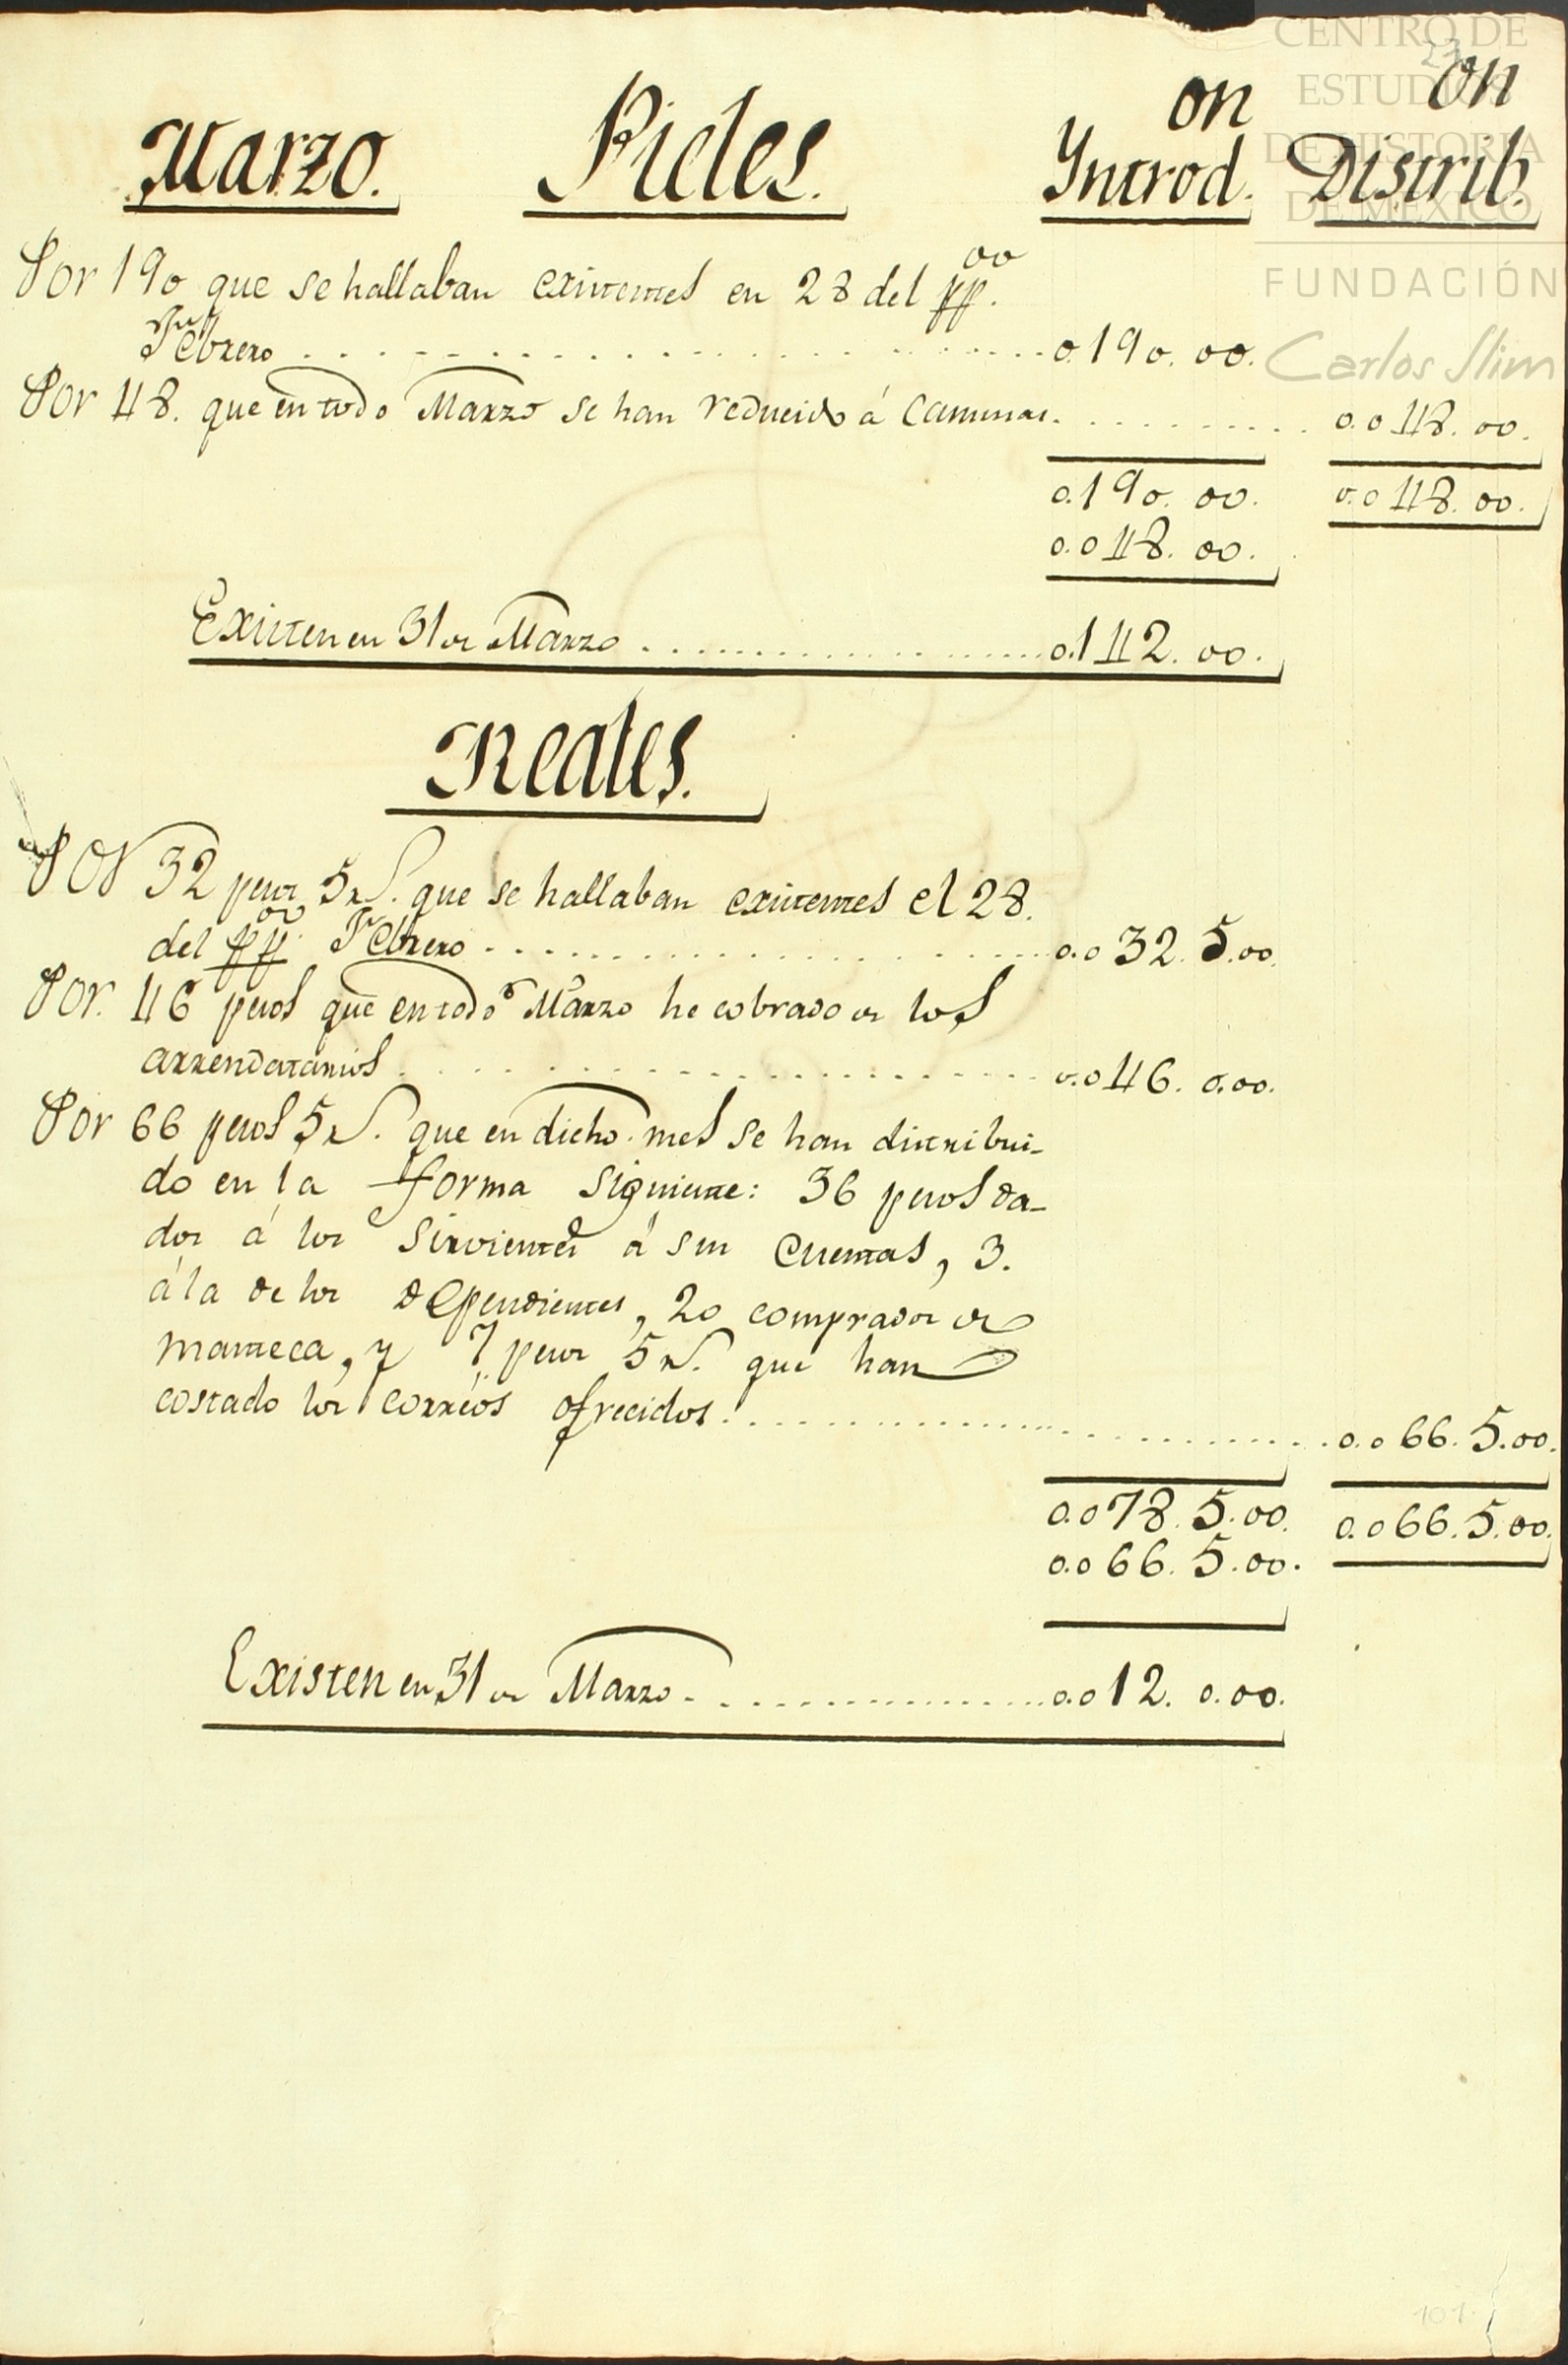 CENTRO DE
ESTUDIOS
DE HISTORIA
DE MEXICO
FUNDACIÓN
Carlos Slim
Marzo. Pieles. Introd.on Distrib.on
Por 190 que se hallaban existentes en 28 del pp.oo
Febrero 0.190.00.
Por 48. que en todo Marzo se han reducido á Camusas. 0.048.00.
0.190.00. 0.048.00.
0.048.00.
Existen en 31 de Marzo 0.142.00.
Reales.
Por 32 pesos 5 rs. que se hallaban existentes el 28.
del pp.oo Febrero 0.032.5.00.
Por. 46 pesos que en todo Marzo he cobrado de los
arrendatarios 0.046.0.00.
Por 66 pesos 5 rs. que en dicho mes se han distribui-
do en la forma siguiente: 36 pesos da-
dos á los sirvientes á sus cuentas, 3.
á la de los dependientes, 20 comprados de
manteca, y 7 pesos 5 rs. que han
costado los correos ofrecidos. 0.066.5.00.
0.078.5.00. 0.066.5.00.
0.066.5.00.
Existen en 31 de Marzo 0.012.0.00.
101.